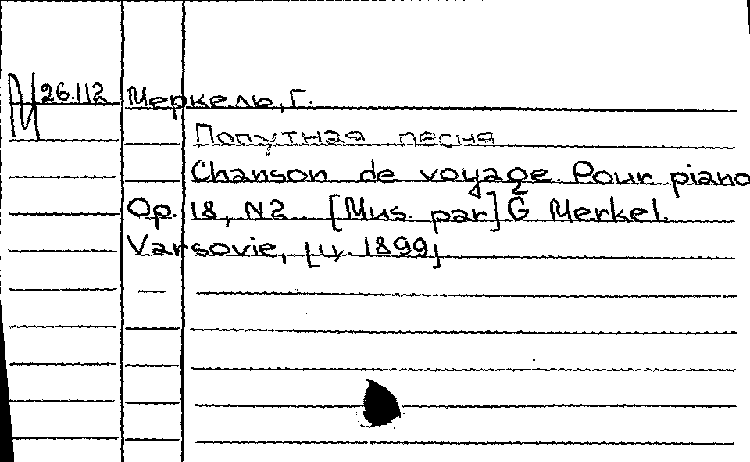 М 26.112 Меркель, Г.
Попутная песня
Chanson de voyage. Pour piano
Op. 18, N2. [Mus. par] G Merkel.
Varsovie, [ц. 1899]